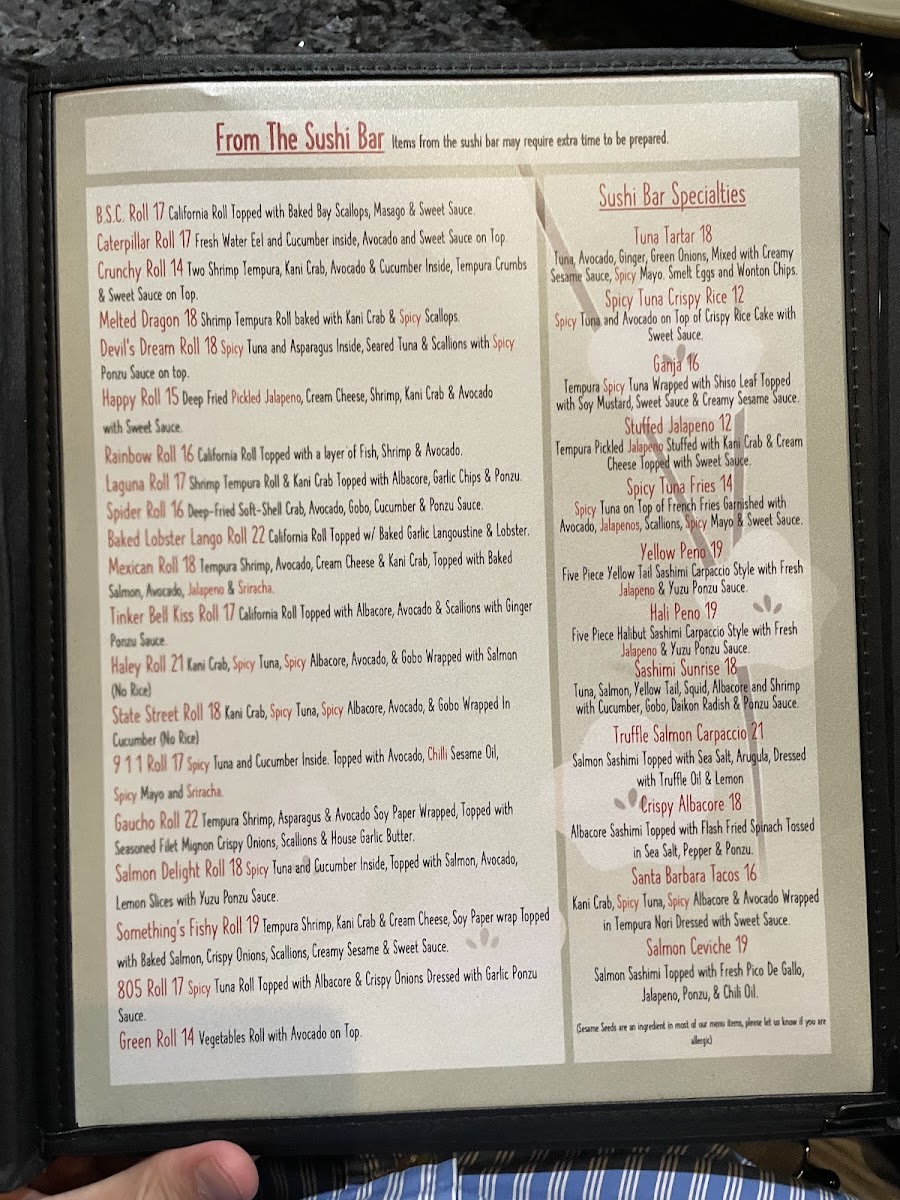 From The Sushi Bar Items from the sushi bar may require extra time to be prepared.
B.S.C. Roll 17 California Roll Topped with Baked Bay Scallops, Masago & Sweet Sauce.
Caterpillar Roll 17 Fresh Water Eel and Cucumber inside, Avocado and Sweet Sauce on Top.
Crunchy Roll 14 Two Shrimp Tempura, Kani Crab, Avocado & Cucumber Inside, Tempura Crumbs
& Sweet Sauce on Top.
Melted Dragon 18 Shrimp Tempura Roll baked with Kani Crab & Spicy Scallops.
Devil's Dream Roll 18 Spicy Tuna and Asparagus Inside, Seared Tuna & Scallions with Spicy
Ponzu Sauce on top.
Happy Roll 15 Deep Fried Pickled Jalapeno, Cream Cheese, Shrimp, Kani Crab & Avocado
with Sweet Sauce.
Rainbow Roll 16 California Roll Topped with a layer of Fish, Shrimp & Avocado.
Laguna Roll 17 Shrimp Tempura Roll & Kani Crab Topped with Albacore, Garlic Chips & Ponzu.
Spider Roll 16 Deep-Fried Soft-Shell Crab, Avocado, Gobo, Cucumber & Ponzu Sauce.
Baked Lobster Lango Roll 22 California Roll Topped w/ Baked Garlic Langoustine & Lobster.
Mexican Roll 18 Tempura Shrimp, Avocado, Cream Cheese & Kani Crab, Topped with Baked
Salmon, Avocado, Jalapeno & Sriracha.
Tinker Bell Kiss Roll 17 California Roll Topped with Albacore, Avocado & Scallions with Ginger
Ponzu Sauce.
Haley Roll 21 Kani Crab, Spicy Tuna, Spicy Albacore, Avocado, & Gobo Wrapped with Salmon
(No Rice)
State Street Roll 18 Kani Crab, Spicy Tuna, Spicy Albacore, Avocado, & Gobo Wrapped In
Cucumber (No Rice)
9 1 1 Roll 17 Spicy Tuna and Cucumber Inside. Topped with Avocado, Chilli Sesame Oil,
Spicy Mayo and Sriracha.
Gaucho Roll 22 Tempura Shrimp, Asparagus & Avocado Soy Paper Wrapped, Topped with
Seasoned Filet Mignon Crispy Onions, Scallions & House Garlic Butter.
Salmon Delight Roll 18 Spicy Tuna and Cucumber Inside, Topped with Salmon, Avocado,
Lemon Slices with Yuzu Ponzu Sauce.
Something's Fishy Roll 19 Tempura Shrimp, Kani Crab & Cream Cheese, Soy Paper wrap Topped
with Baked Salmon, Crispy Onions, Scallions, Creamy Sesame & Sweet Sauce.
805 Roll 17 Spicy Tuna Roll Topped with Albacore & Crispy Onions Dressed with Garlic Ponzu
Sauce.
Green Roll 14 Vegetables Roll with Avocado on Top.
Sushi Bar Specialties
Tuna Tartar 18
Tuna, Avocado, Ginger, Green Onions, Mixed with Creamy
Sesame Sauce, Spicy Mayo. Smelt Eggs and Wonton Chips.
Spicy Tuna Crispy Rice 12
Spicy Tuna and Avocado on Top of Crispy Rice Cake with
Sweet Sauce.
Ganja 16
Tempura Spicy Tuna Wrapped with Shiso Leaf Topped
with Soy Mustard, Sweet Sauce & Creamy Sesame Sauce.
Stuffed Jalapeno 12
Tempura Pickled Jalapeno Stuffed with Kani Crab & Cream
Cheese Topped with Sweet Sauce.
Spicy Tuna Fries 14
Spicy Tuna on Top of French Fries Garnished with
Avocado, Jalapenos, Scallions, Spicy Mayo & Sweet Sauce.
Yellow Peno 19
Five Piece Yellow Tail Sashimi Carpaccio Style with Fresh
Jalapeno & Yuzu Ponzu Sauce.
Hali Peno 19
Five Piece Halibut Sashimi Carpaccio Style with Fresh
Jalapeno & Yuzu Ponzu Sauce.
Sashimi Sunrise 18
Tuna, Salmon, Yellow Tail, Squid, Albacore and Shrimp
with Cucumber, Gobo, Daikon Radish & Ponzu Sauce.
Truffle Salmon Carpaccio 21
Salmon Sashimi Topped with Sea Salt, Arugula, Dressed
with Truffle Oil & Lemon
Crispy Albacore 18
Albacore Sashimi Topped with Flash Fried Spinach Tossed
in Sea Salt, Pepper & Ponzu.
Santa Barbara Tacos 16
Kani Crab, Spicy Tuna, Spicy Albacore & Avocado Wrapped
in Tempura Nori Dressed with Sweet Sauce.
Salmon Ceviche 19
Salmon Sashimi Topped with Fresh Pico De Gallo,
Jalapeno, Ponzu, & Chili Oil.
(Sesame Seeds are an ingredient in most of our menu items, please let us know if you are
allergic)